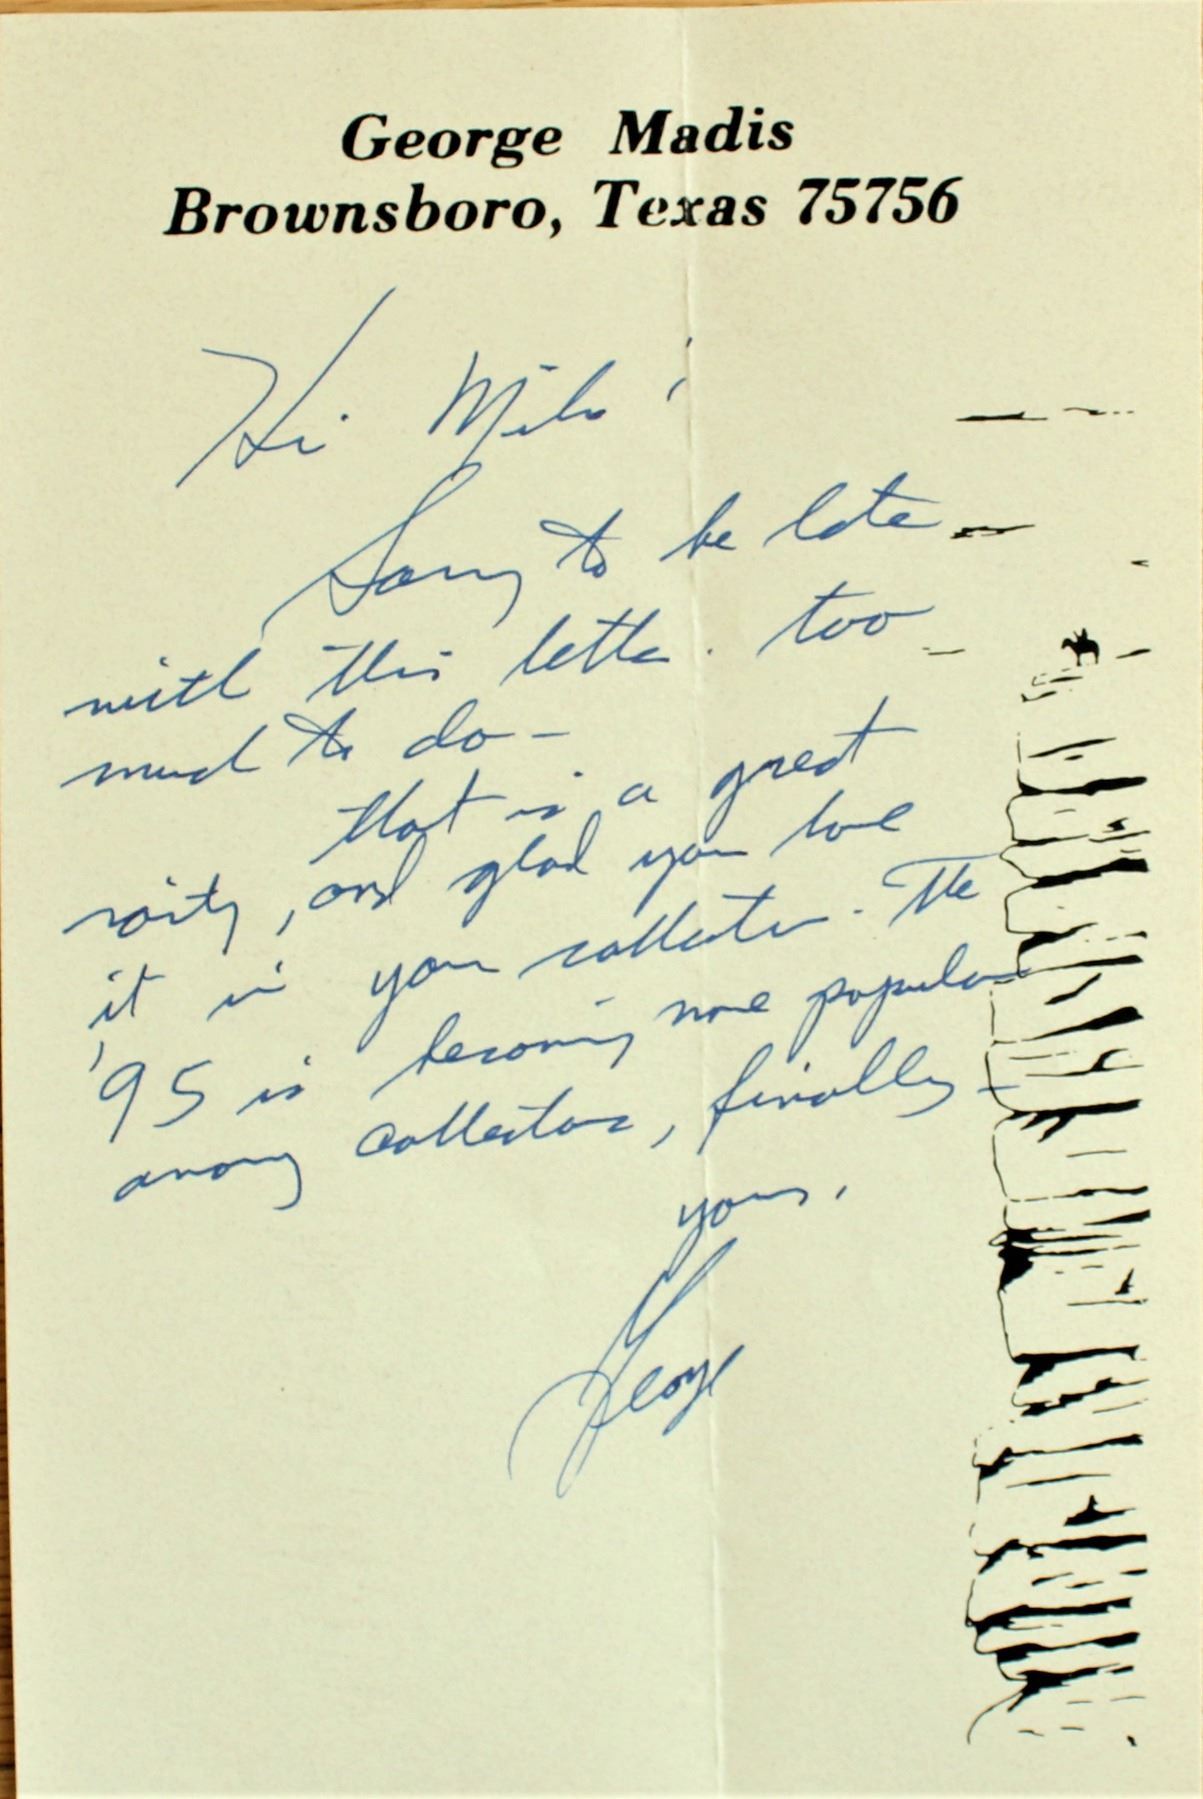 George Madis
Brownsboro, Texas 75756
Hi
Sorry to be late
with this letter. too
much to do -
that is a great
rarity, and glad you have
it in your collection. The
'95 is becoming more popular
among collectors, finally -
yours,
George